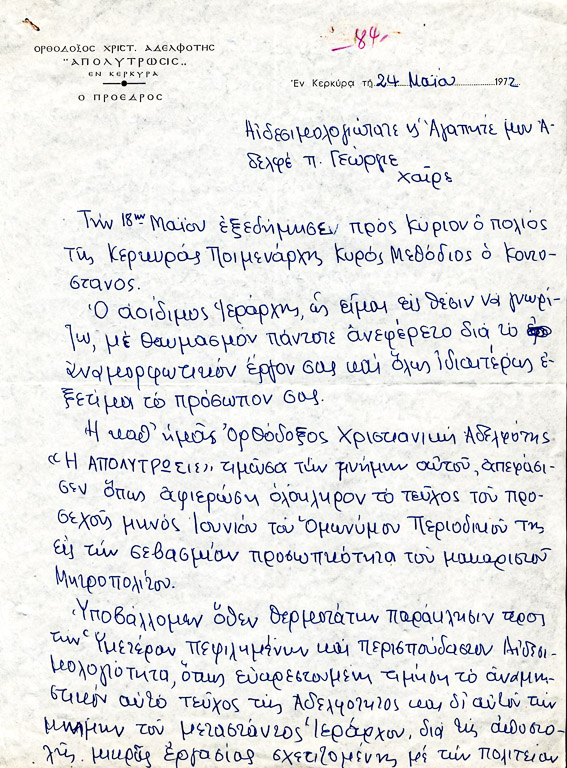 ΟΡΘΟΔΟΞΟΣ ΧΡΙΣΤ. ΑΔΕΛΦΟΤΗΣ
"ΑΠΟΛΥΤΡΩΣΙΣ„
ΕΝ ΚΕΡΚΥΡΑ
Ο ΠΡΟΕΔΡΟΣ
84
Ἐν Κερκύρᾳ τῇ 24 Μαΐου 1972
Αἰδεσιμολογιώτατε κ' Ἀγαπητέ μου Ἀ-
δελφέ π. Γεώργιε
χαῖρε
Τήν 18ην Μαΐου ἐξεδήμησεν πρός Κύριον ὁ πολιός
τῆς Κερκυράς Ποιμενάρχης Κυρός Μεθόδιος ὁ Κοντο-
στανος.
Ὁ ἀοίδιμος Ἱεράρχης, ὡς εἶμαι εἰς θέσιν να γνωρί-
ζω, μέ θαυμασμόν πάντοτε ἀνεφέρετο διά το
ἀναμορφωτικόν ἔργον σας καί ὅλως ἰδιαιτέρως ἐ-
ξετίμα τό πρόσωπον σας.
Ἡ καθ' ἡμᾶς Ὀρθόδοξος Χριστιανική Ἀδελφότης
"Η ΑΠΟΛΥΤΡΩΣΙΣ„ τιμῶσα τήν μνήμην αὐτοῦ, ἀπεφάσι-
σεν ὅπως ἀφιερώση ὁλόκληρον τό τεῦχος τοῦ προ-
σεχοῦς μηνός Ἰουνίου τοῦ Ὁμωνύμου Περιοδικοῦ της
εἰς τήν σεβασμίαν προσωπικότητα τοῦ μακαριστοῦ
Μητροπολίτου.
Ὑποβάλλομεν ὅθεν θερμοτάτην παράκλησιν προς
την Ὑμετέραν Πεφιλημένην καί περισπούδαστον Αἰδεσι-
μολογιότητα, ὅπως εὐαρεστουμένη τιμήση τό ἀναμνη-
στικόν αὐτό τεῦχος τῆς Ἀδελφότητος και δι' αὐτοῦ τήν
μνήμην τοῦ μεταστάντος Ἱεράρχου, διά τῆς ἀποστο-
λῆς μικρᾶς ἐργασίας σχετιζομένης μέ τήν πολιτείαν